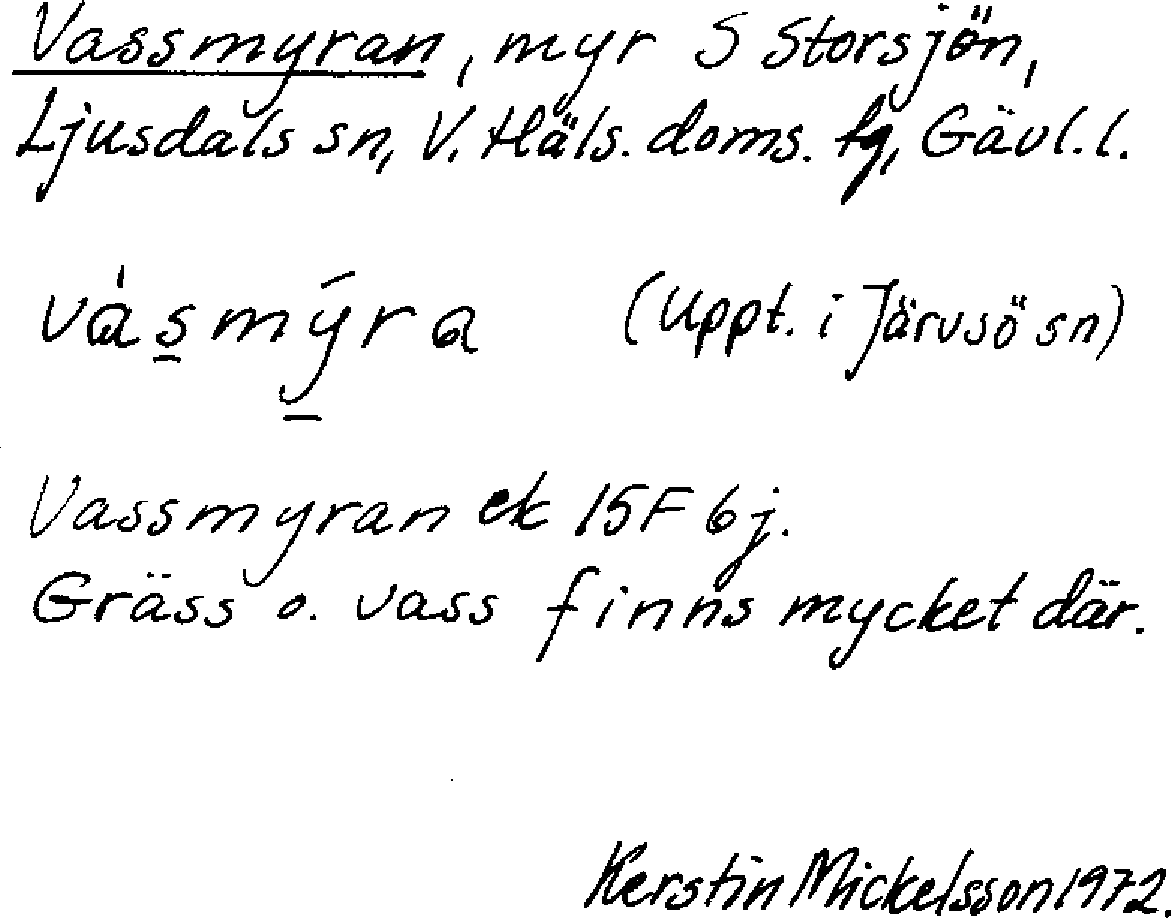 Vassmyran, myr S Storsjön,
Ljusdals sn, V. Häls. doms. fg, Gävl. l.
vásmýra (Uppt. i Järvsö sn)
Vassmyran ek 15F 6j.
Gräss o. vass finns mycket där.
Kerstin Mickelsson 1972.